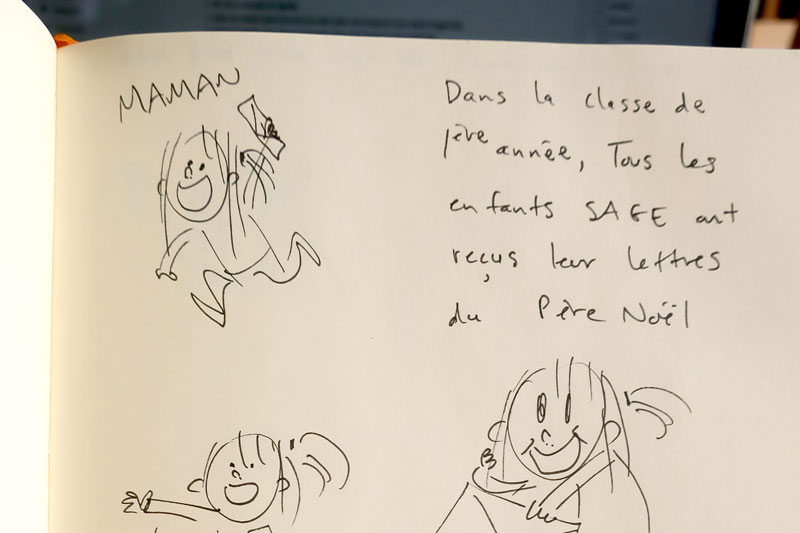 MAMAN
Dans la classe de
1ère année, Tous les
enfants SAGE ont
reçus leur lettres
du Père Noël